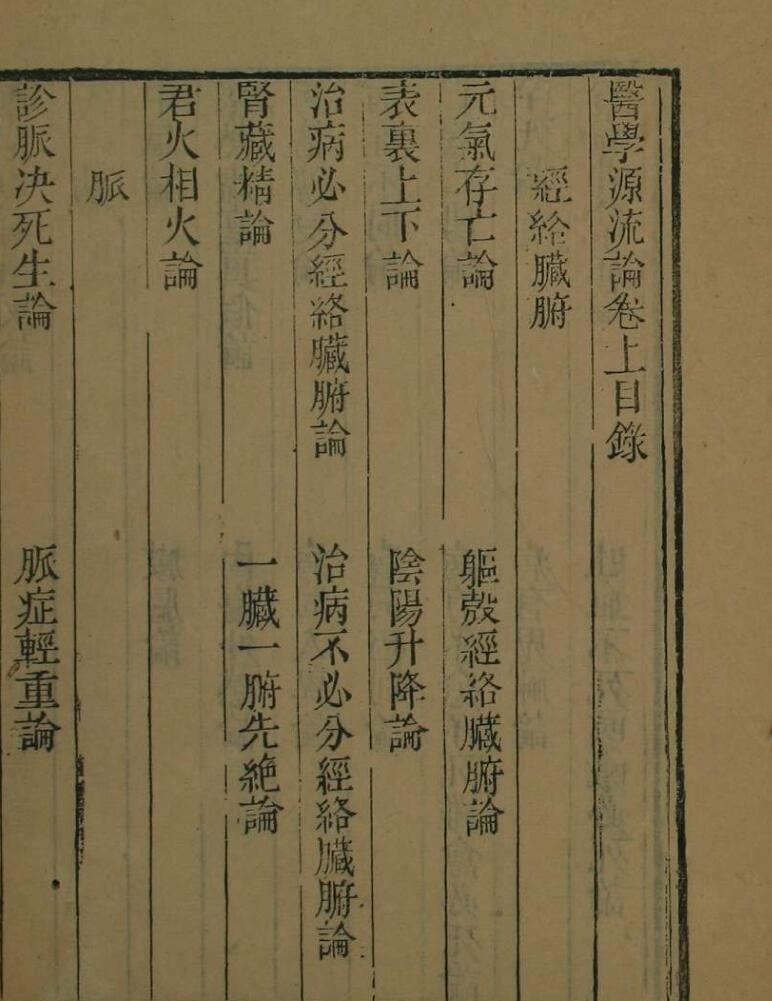 醫學源流論卷上目錄
經絡臟腑
元氣存亡論 軀殼經絡臓腑論
表裏上下論 陰陽升降論
治病必分經絡臟腑論 治病不必分經絡臓腑論
腎藏精論 一臟一腑先絶論
君火相火論
脈
診脈决死生論 脈症輕重論